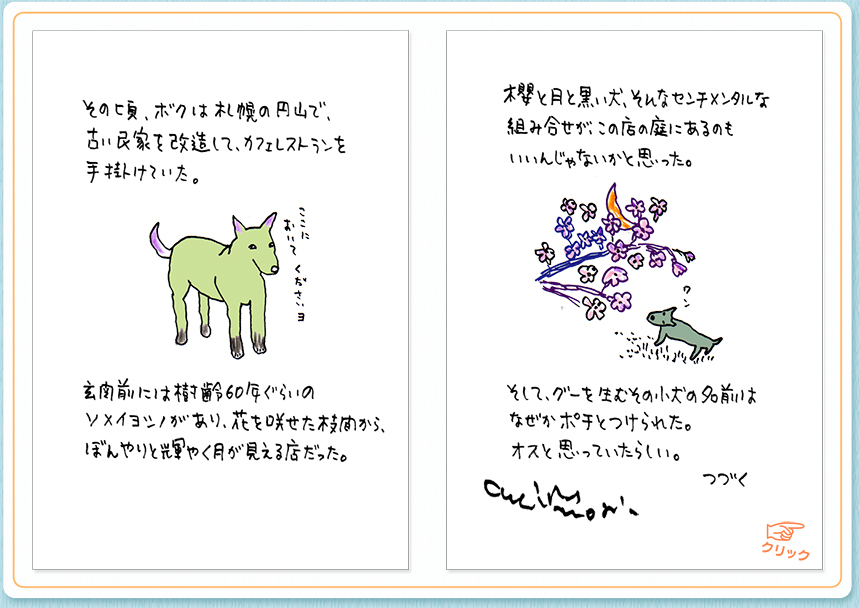 その頃、ボクは札幌の円山で、
古い民家を改造して、カフェレストランを
手掛けていた。
ここに
おいて
くださいヨ
玄関前には樹齢60年ぐらいの
ソメイヨシノがあり、花を咲せた枝間から、
ぼんやりと輝やく月が見える店だった。
櫻と月と黒い犬、そんなセンチメンタルな
組み合せが、この店の庭にあるのも
いいんじゃないかと思った。
ワン
そして、グーを生むその小犬の名前は
なぜかポチとつけられた。
オスと思っていたらしい。
つづく
クリック